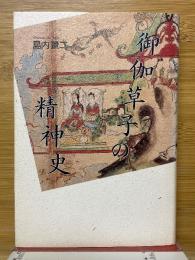 島内景二
御伽草子の
精神史